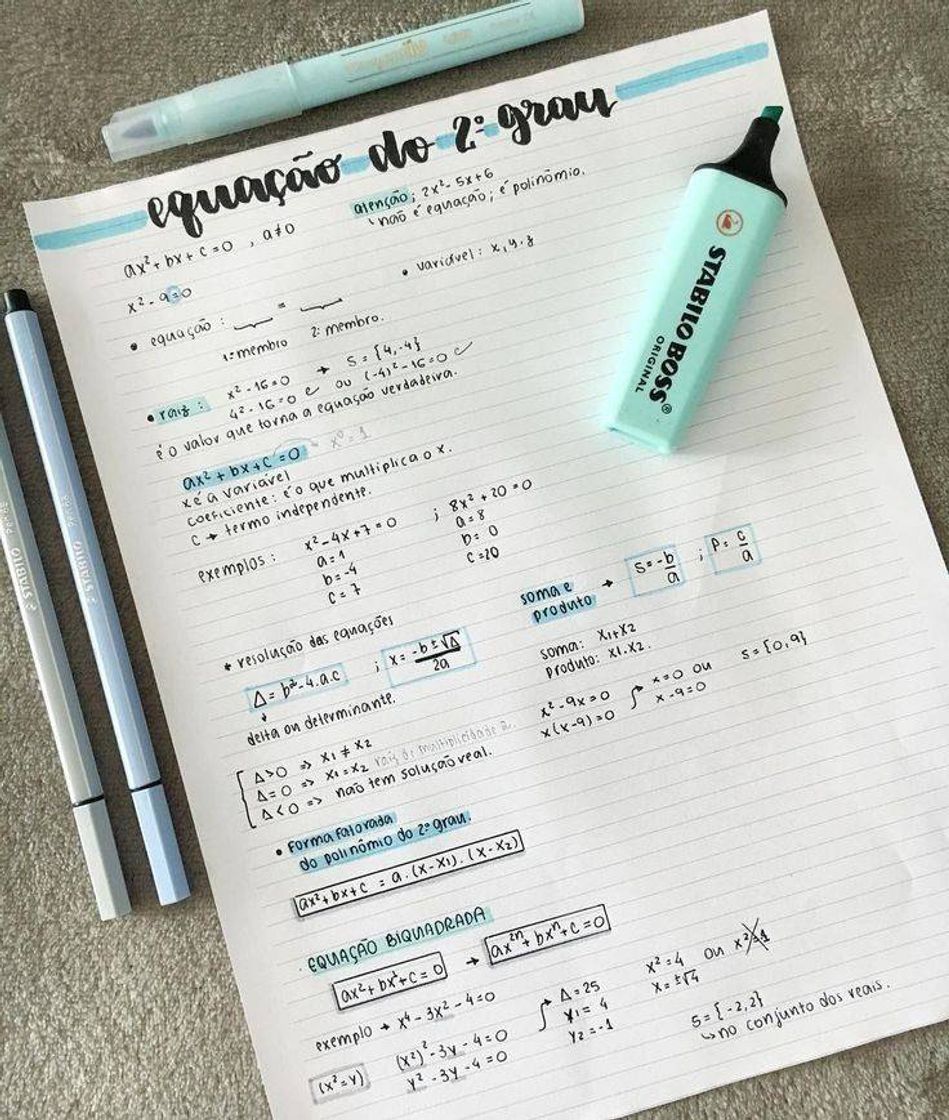 equação do 2º grau
atenção; 2x² - 5x + 6
não é equação; é polinômio.
ax² + bx + c = 0 , a ≠ 0
• variável: x, y, z
x² - 9 = 0
• equação: ___ = ___
1º membro 2º membro.
• raiz: x² - 16 = 0 → S = {4, -4}
4² - 16 = 0 ✓ ou (-4)² - 16 = 0 ✓
é o valor que torna a equação verdadeira.
ax² + bx + c = 0 → x⁰ = 1
x é a variável
coeficiente: é o que multiplica o x.
c → termo independente.
exemplos: x² - 4x + 7 = 0 ; 8x² + 20 = 0
a = 1 a = 8
b = -4 b = 0
c = 7 c = 20
soma e produto → S = -b/a ; P = c/a
soma: x1 + x2
produto: x1 . x2.
* resolução das equações
Δ = b² - 4.a.c ; x = -b ± √Δ / 2a
delta ou determinante.
x² - 9x = 0
x(x - 9) = 0
x = 0 ou
x - 9 = 0
S = {0, 9}
Δ > 0 => x1 ≠ x2
Δ = 0 => x1 = x2 raiz de multiplicidade 2.
Δ < 0 => não tem solução real.
• forma fatorada
do polinômio do 2º grau.
ax² + bx + c = a . (x - x1) . (x - x2)
. EQUAÇÃO BIQUADRADA
→ ax²ⁿ + bxⁿ + c = 0
exemplo → x⁴ - 3x² - 4 = 0
(x² = y)
(x²)² - 3y - 4 = 0
y² - 3y - 4 = 0
Δ = 25
y1 = 4
y2 = -1
x² = 4 ou x² = -1
x = ±√4
S = {-2, 2}
no conjunto dos reais.
STABILO BOSS®
ORIGINAL
STABILO
STABILO